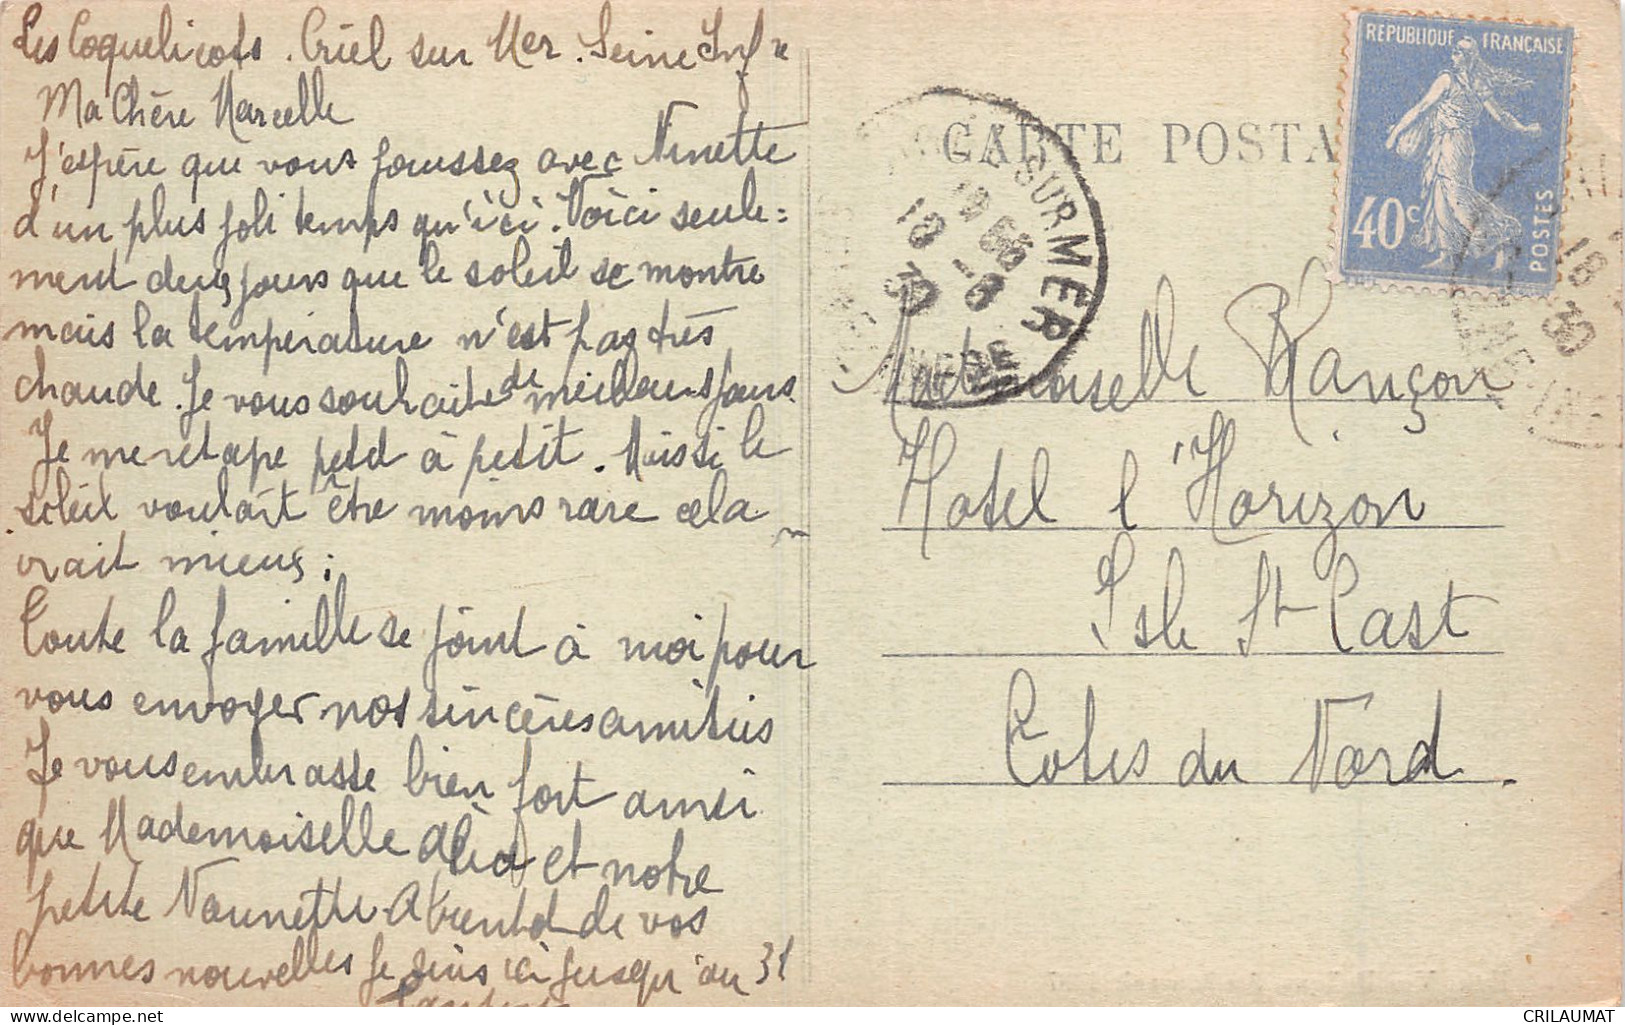 Les Coquelicots. Criel sur Mer. Seine Infre
Ma Chère Marcelle
J'espère que vous jouissez avec Ninette
d'un plus joli temps qu'ici. Voici seule=
ment deux jours que le soleil se montre
mais la température n'est pas très
chaude. Je vous souhaite de meilleurs jours
Je me retape petit à petit. Mais si le
soleil voulait être moins rare cela
irait mieux;
Toute la famille se joint à moi pour
vous envoyer nos sincères amitiés
Je vous embrasse bien fort ainsi
que Mademoiselle et notre
petite Nounette. A bientôt de vos
bonnes nouvelles Je suis ici jusqu'au 31
CARTE POSTA
REPUBLIQUE FRANÇAISE
40c
POSTES
SUR MER
18
30
Mademoiselle Rançon
Hotel l'Horizon
Isle St Cast
Cotes du Nord.
delcampe.net
CRILAUMAT